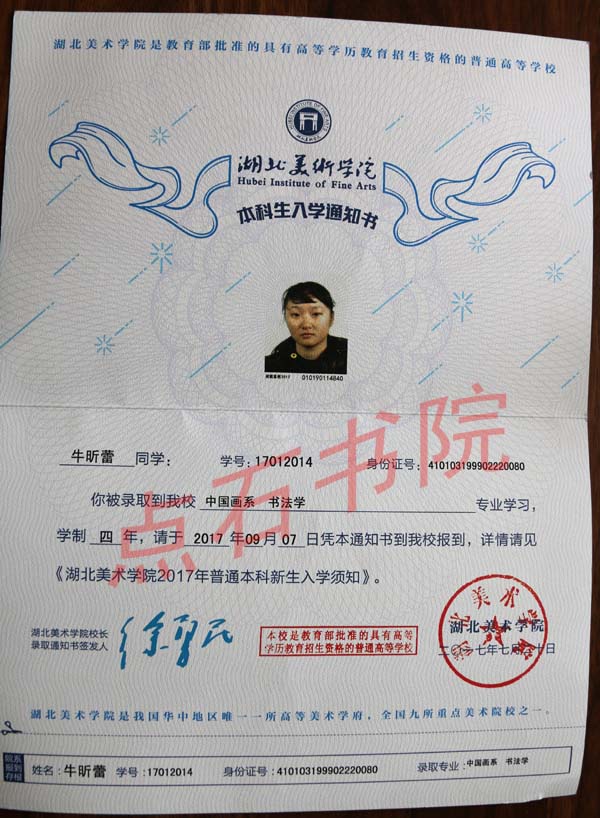 湖北美术学院是教育部批准的具有高等学历教育招生资格的普通高等学校
湖北美術学院
Hubei Institute of Fine Arts
本科生入学通知书
010190114840
点石书院
牛昕蕾 同学： 学号：17012014 身份证号：410103199902220080
你被录取到我校 中国画系 书法学 专业学习，
学制 四 年，请于 2017 年 09 月 07 日凭本通知书到我校报到，详情请见
《湖北美术学院2017年普通本科新生入学须知》。
湖北美术学院校长
录取通知书签发人
徐勇民
本校是教育部批准的具有高等
学历教育招生资格的普通高等学校
湖北美术学院
湖北美术学院
二〇一七年七月 十日
湖北美术学院是我国华中地区唯一一所高等美术学府，全国九所重点美术院校之一。
院系
报到
存根
姓名：牛昕蕾 学号：17012014 身份证号：410103199902220080 录取专业：中国画系 书法学